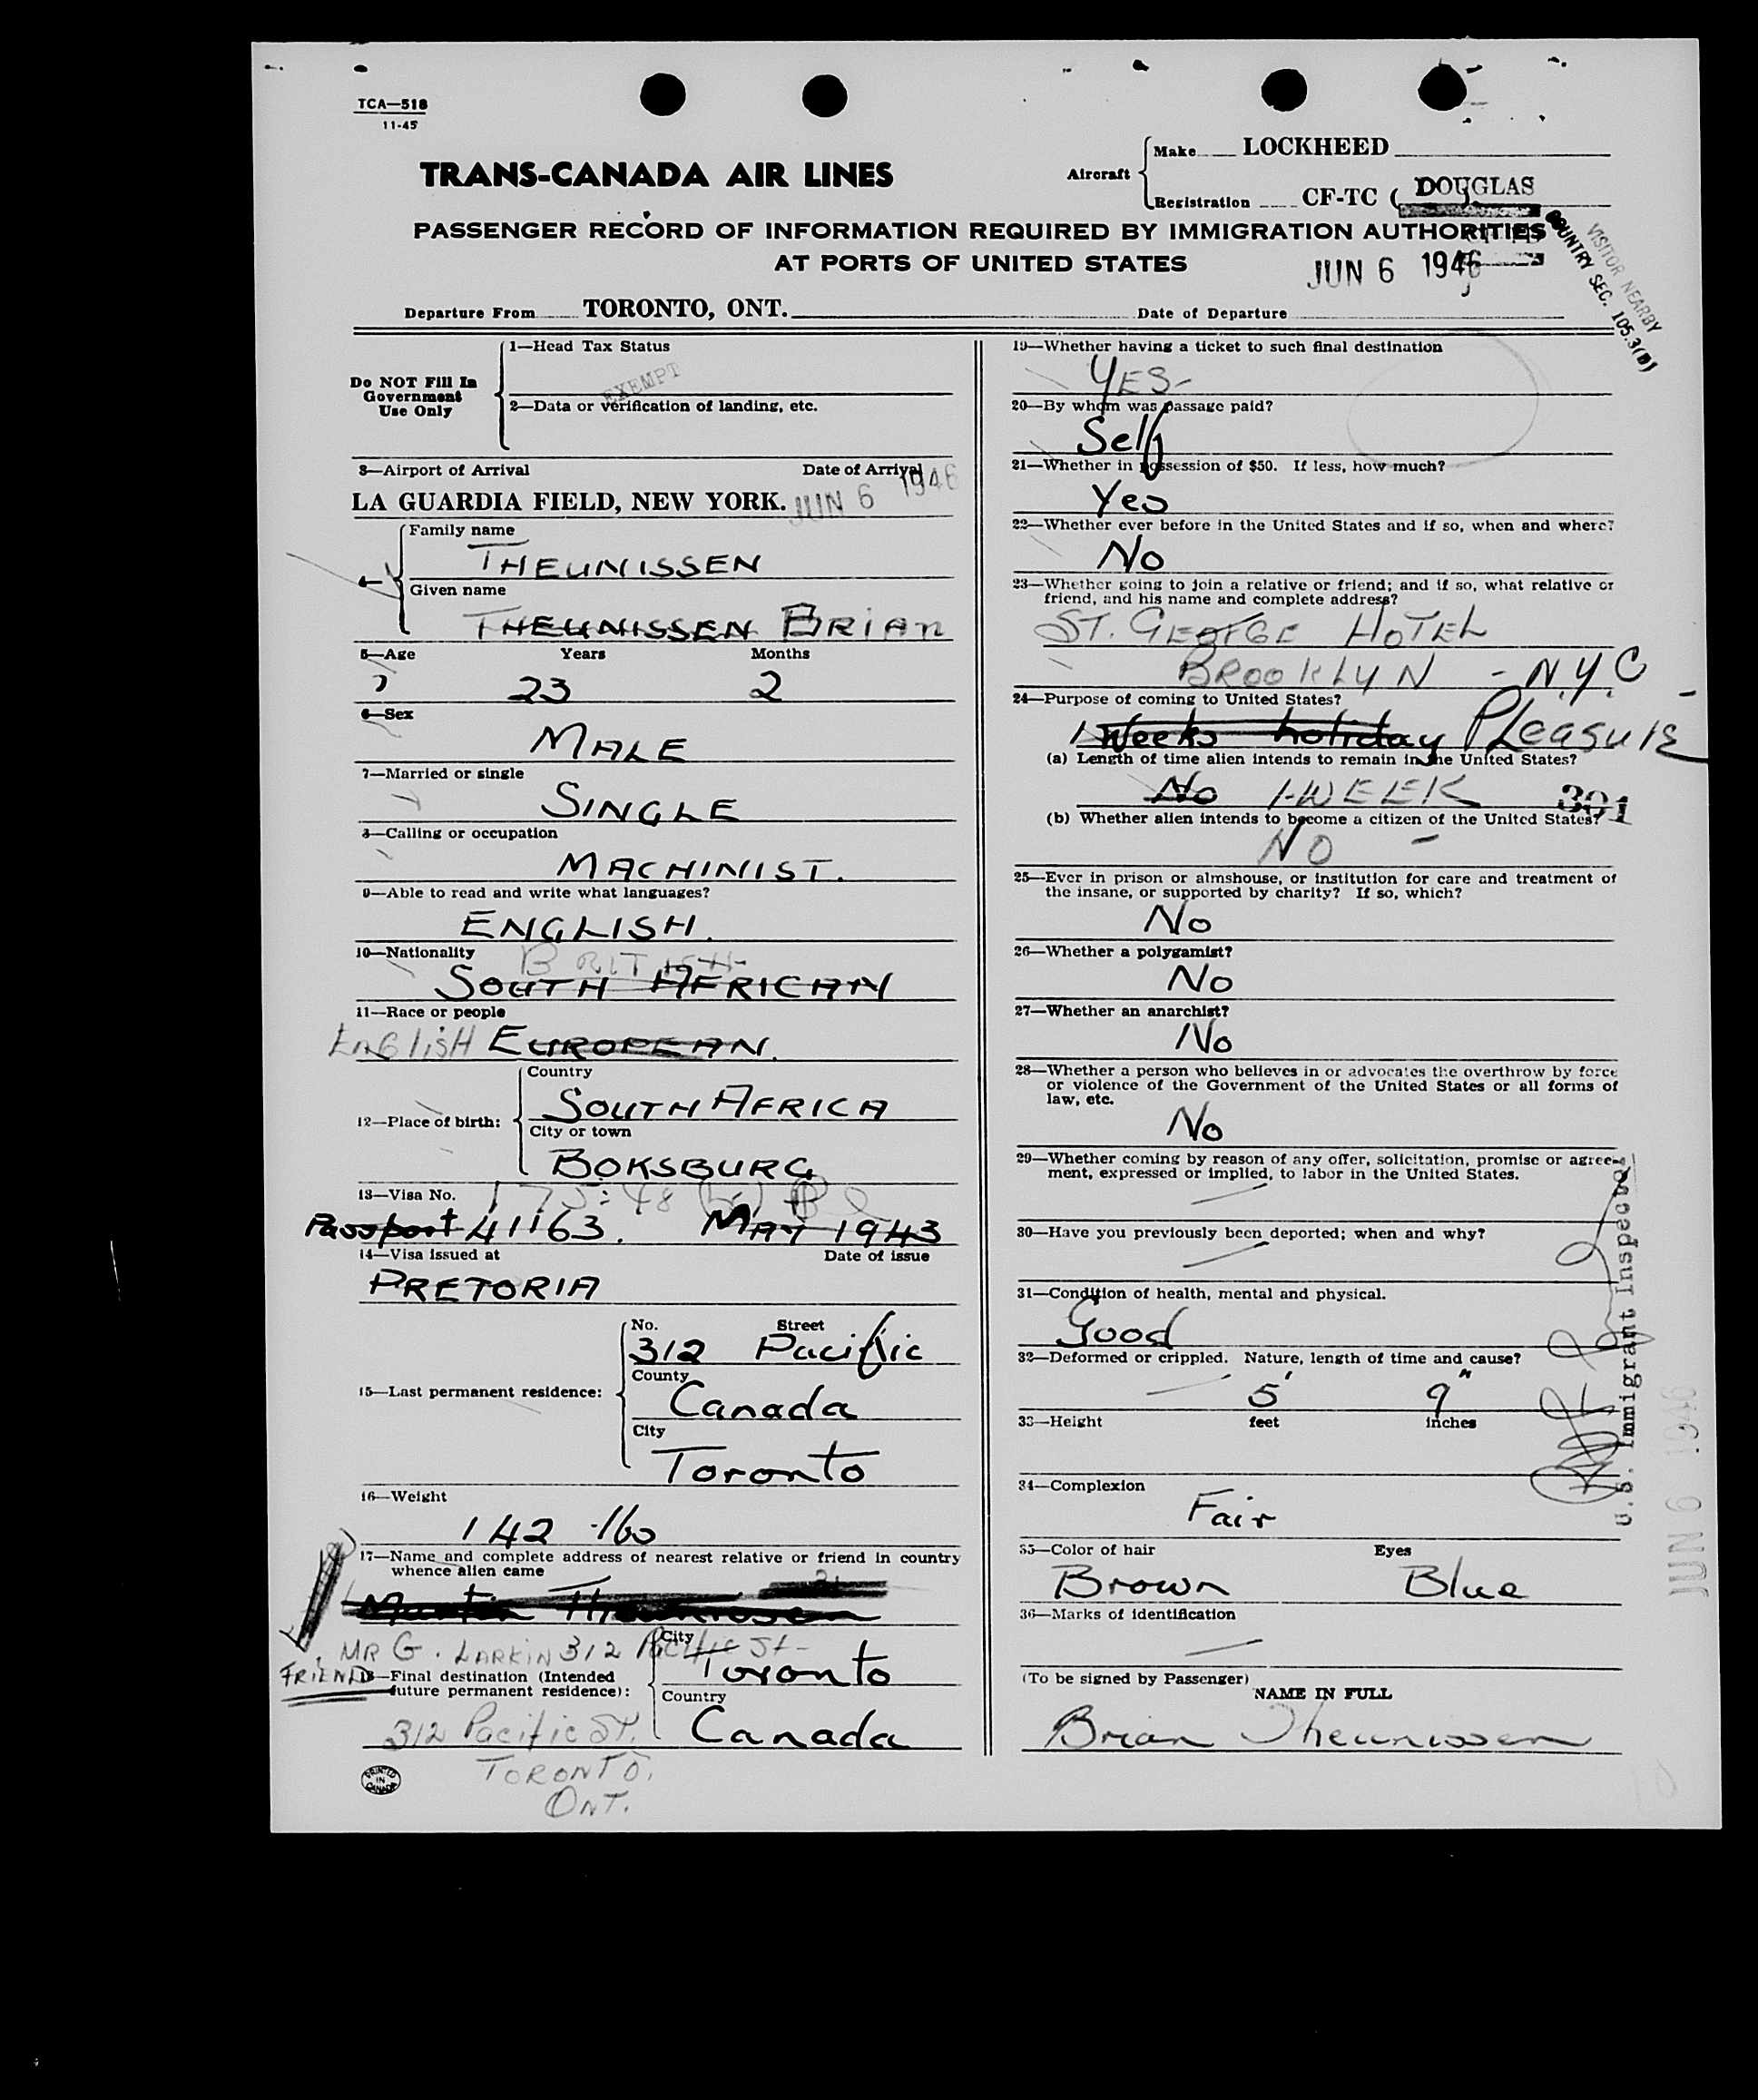 TCA—518
11-45
TRANS-CANADA AIR LINES
Aircraft
Make LOCKHEED
Registration CF-TC ( DOUGLAS
PASSENGER RECORD OF INFORMATION REQUIRED BY IMMIGRATION AUTHORITIES
AT PORTS OF UNITED STATES
JUN 6 1946
VISITOR NEARBY
COUNTRY SEC. 105.3(B)
Departure From TORONTO, ONT.
Date of Departure
Do NOT Fill In
Government
Use Only
1—Head Tax Status
EXEMPT
2—Data or verification of landing, etc.
3—Airport of Arrival Date of Arrival
LA GUARDIA FIELD, NEW YORK. JUN 6 1946
4—
Family name
THEUNISSEN
Given name
THEUNISSEN BRIAN
5—Age Years Months
23 2
6—Sex
MALE
7—Married or single
SINGLE
8—Calling or occupation
MACHINIST.
9—Able to read and write what languages?
ENGLISH.
10—Nationality
BRITISH
SOUTH AFRICAN
11—Race or people
ENGLISH EUROPEAN.
12—Place of birth:
Country
SOUTH AFRICA
City or town
BOKSBURG
13—Visa No.
Passport 41163. MAY 1943
14—Visa issued at Date of issue
PRETORIA
15—Last permanent residence:
No. Street
312 Pacific
County
Canada
City
Toronto
16—Weight
142 lbs
17—Name and complete address of nearest relative or friend in country
whence alien came
Martin Theunissen
MR G. LARKIN 312 Pacific St-
FRIEND
18—Final destination (Intended
future permanent residence):
City
Toronto
Country
Canada
312 Pacific ST.
TORONTO,
ONT.
PRINTED
IN
CANADA
19—Whether having a ticket to such final destination
YES-
20—By whom was passage paid?
Self
21—Whether in possession of $50. If less, how much?
Yes
22—Whether ever before in the United States and if so, when and where?
No
23—Whether going to join a relative or friend; and if so, what relative or
friend, and his name and complete address?
ST. GEORGE HOTEL
BROOKLYN - N.Y.C
24—Purpose of coming to United States?
1 Weeks holiday PLeasure
(a) Length of time alien intends to remain in the United States?
No 1-WEEK
301
(b) Whether alien intends to become a citizen of the United States?
NO -
25—Ever in prison or almshouse, or institution for care and treatment of
the insane, or supported by charity? If so, which?
No
26—Whether a polygamist?
No
27—Whether an anarchist?
No
28—Whether a person who believes in or advocates the overthrow by force
or violence of the Government of the United States or all forms of
law, etc.
No
29—Whether coming by reason of any offer, solicitation, promise or agree-
ment, expressed or implied, to labor in the United States.
30—Have you previously been deported; when and why?
31—Condition of health, mental and physical.
Good
32—Deformed or crippled. Nature, length of time and cause?
5' 9"
33—Height feet inches
34—Complexion
Fair
35—Color of hair Eyes
Brown Blue
36—Marks of identification
(To be signed by Passenger)
NAME IN FULL
Brian Theunissen
U.S. Immigrant Inspector
JUN 6 1946